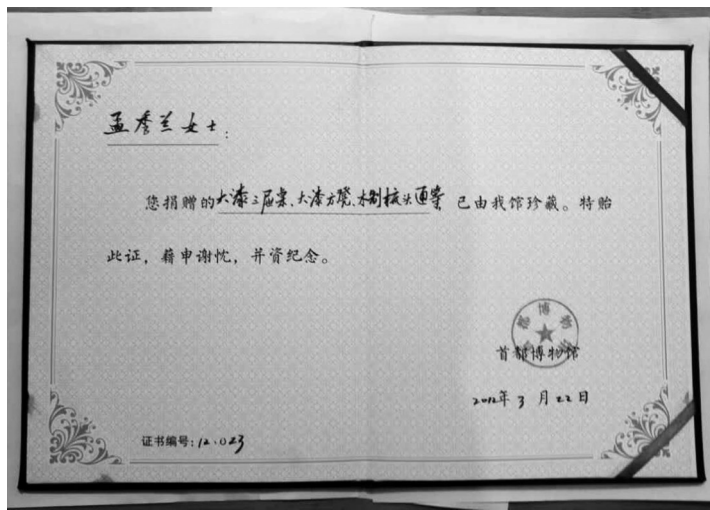 孟秀兰女士：
您捐赠的大漆三屉桌、大漆方凳、木制梳头匣案 已由我馆珍藏。特贻
此证，藉申谢忱，并资纪念。
首都博物馆
2012年3月22日
证书编号：12.023